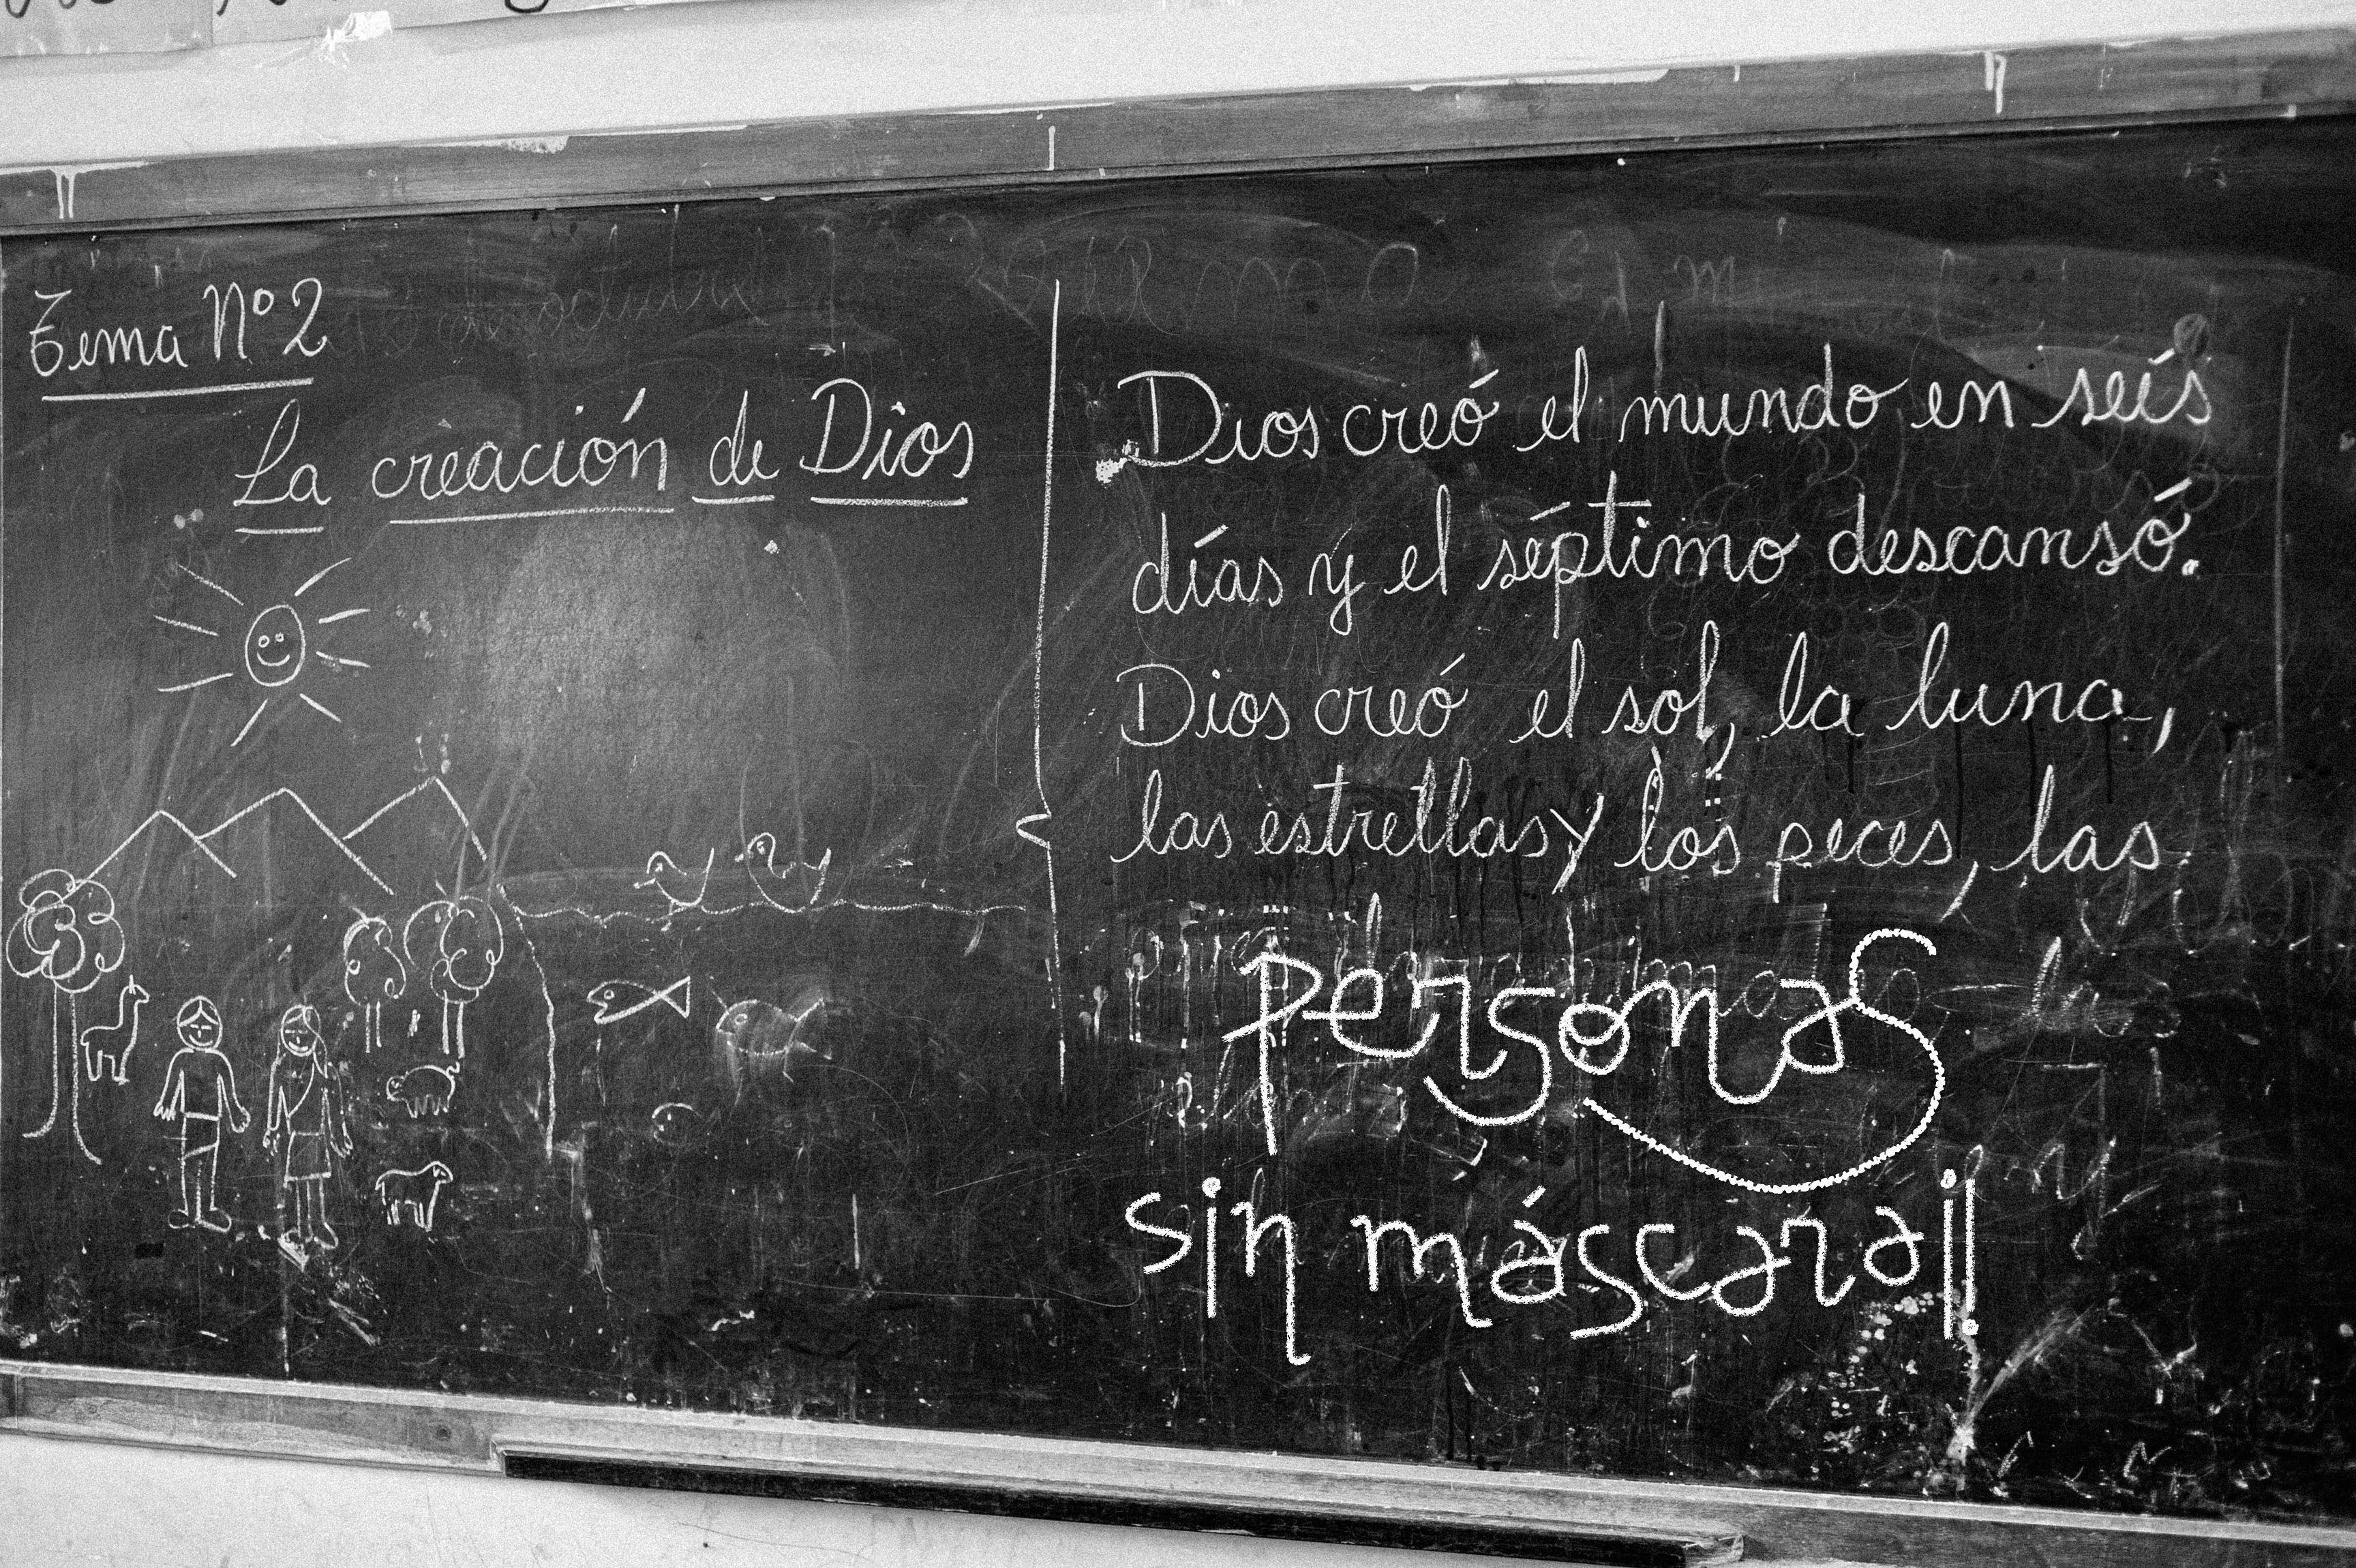 Tema Nº 2
La creación de Dios
Dios creó el mundo en seís
días y el séptimo descansó.
Dios creó el sol, la luna,
las estrellas y los peces, las
personas
sin máscara!!